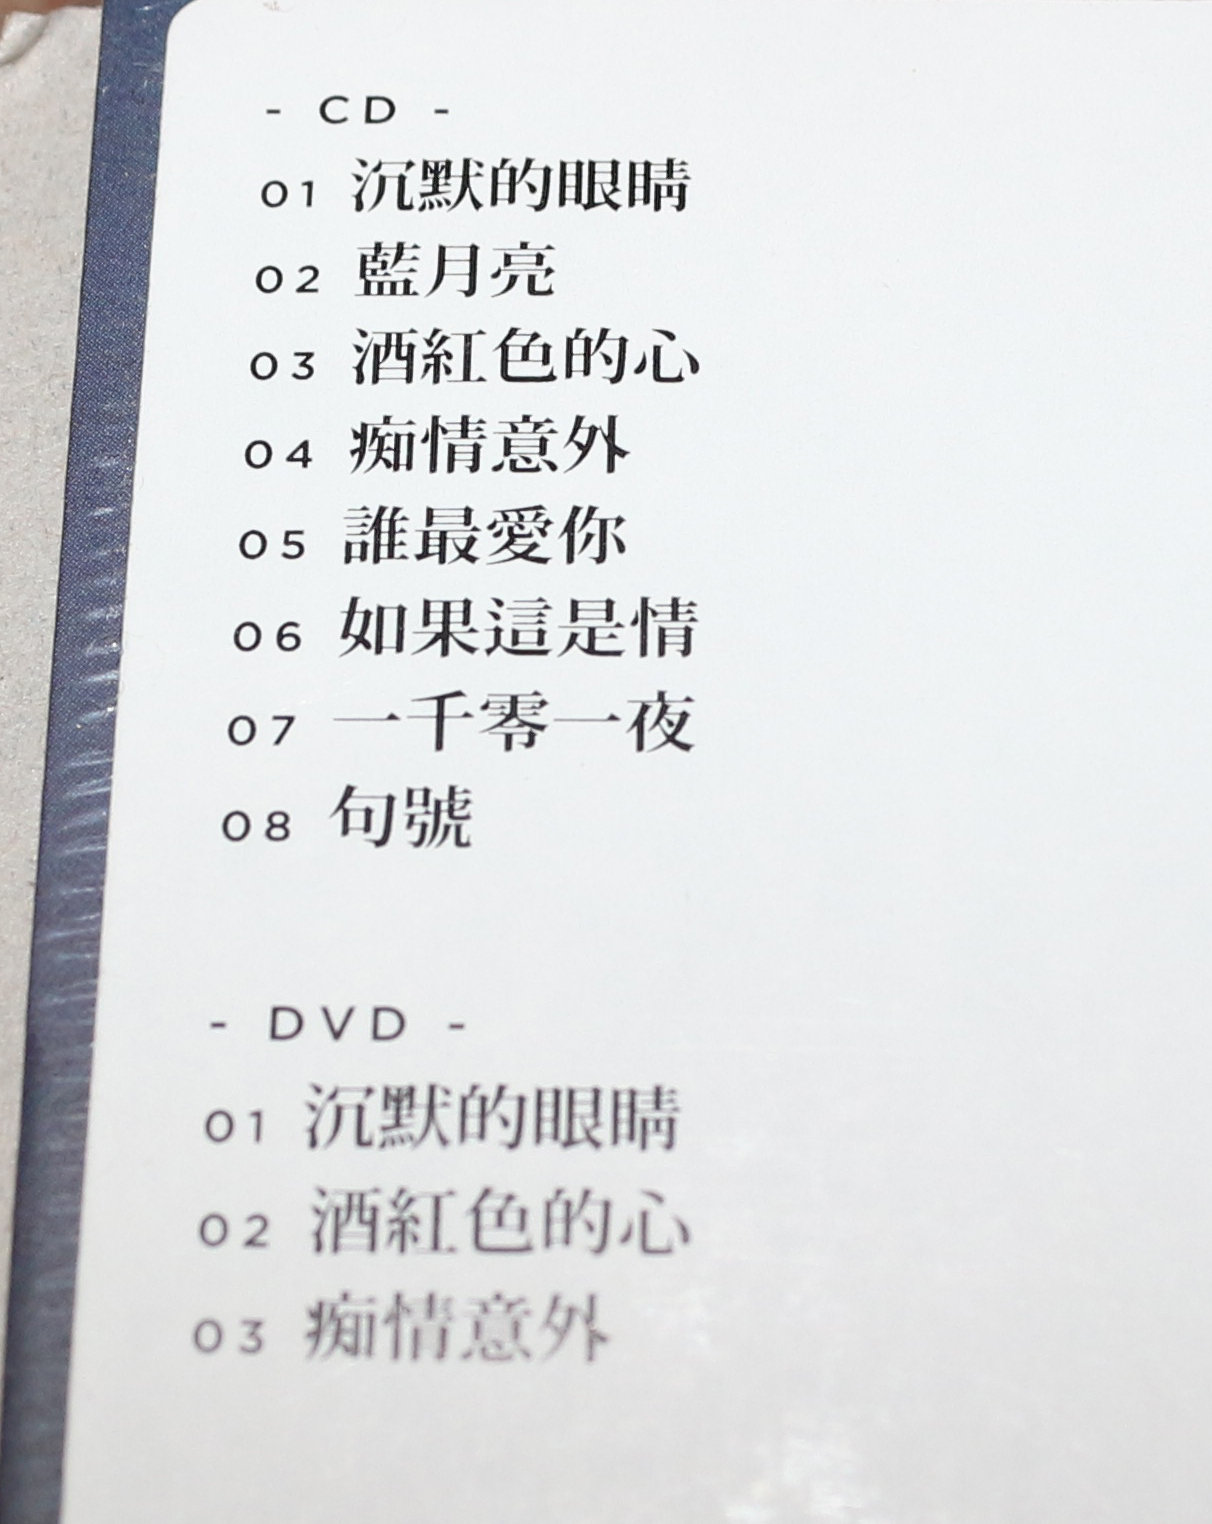 - CD -
01 沉默的眼睛
02 藍月亮
03 酒紅色的心
04 痴情意外
05 誰最愛你
06 如果這是情
07 一千零一夜
08 句號
- DVD -
01 沉默的眼睛
02 酒紅色的心
03 痴情意外